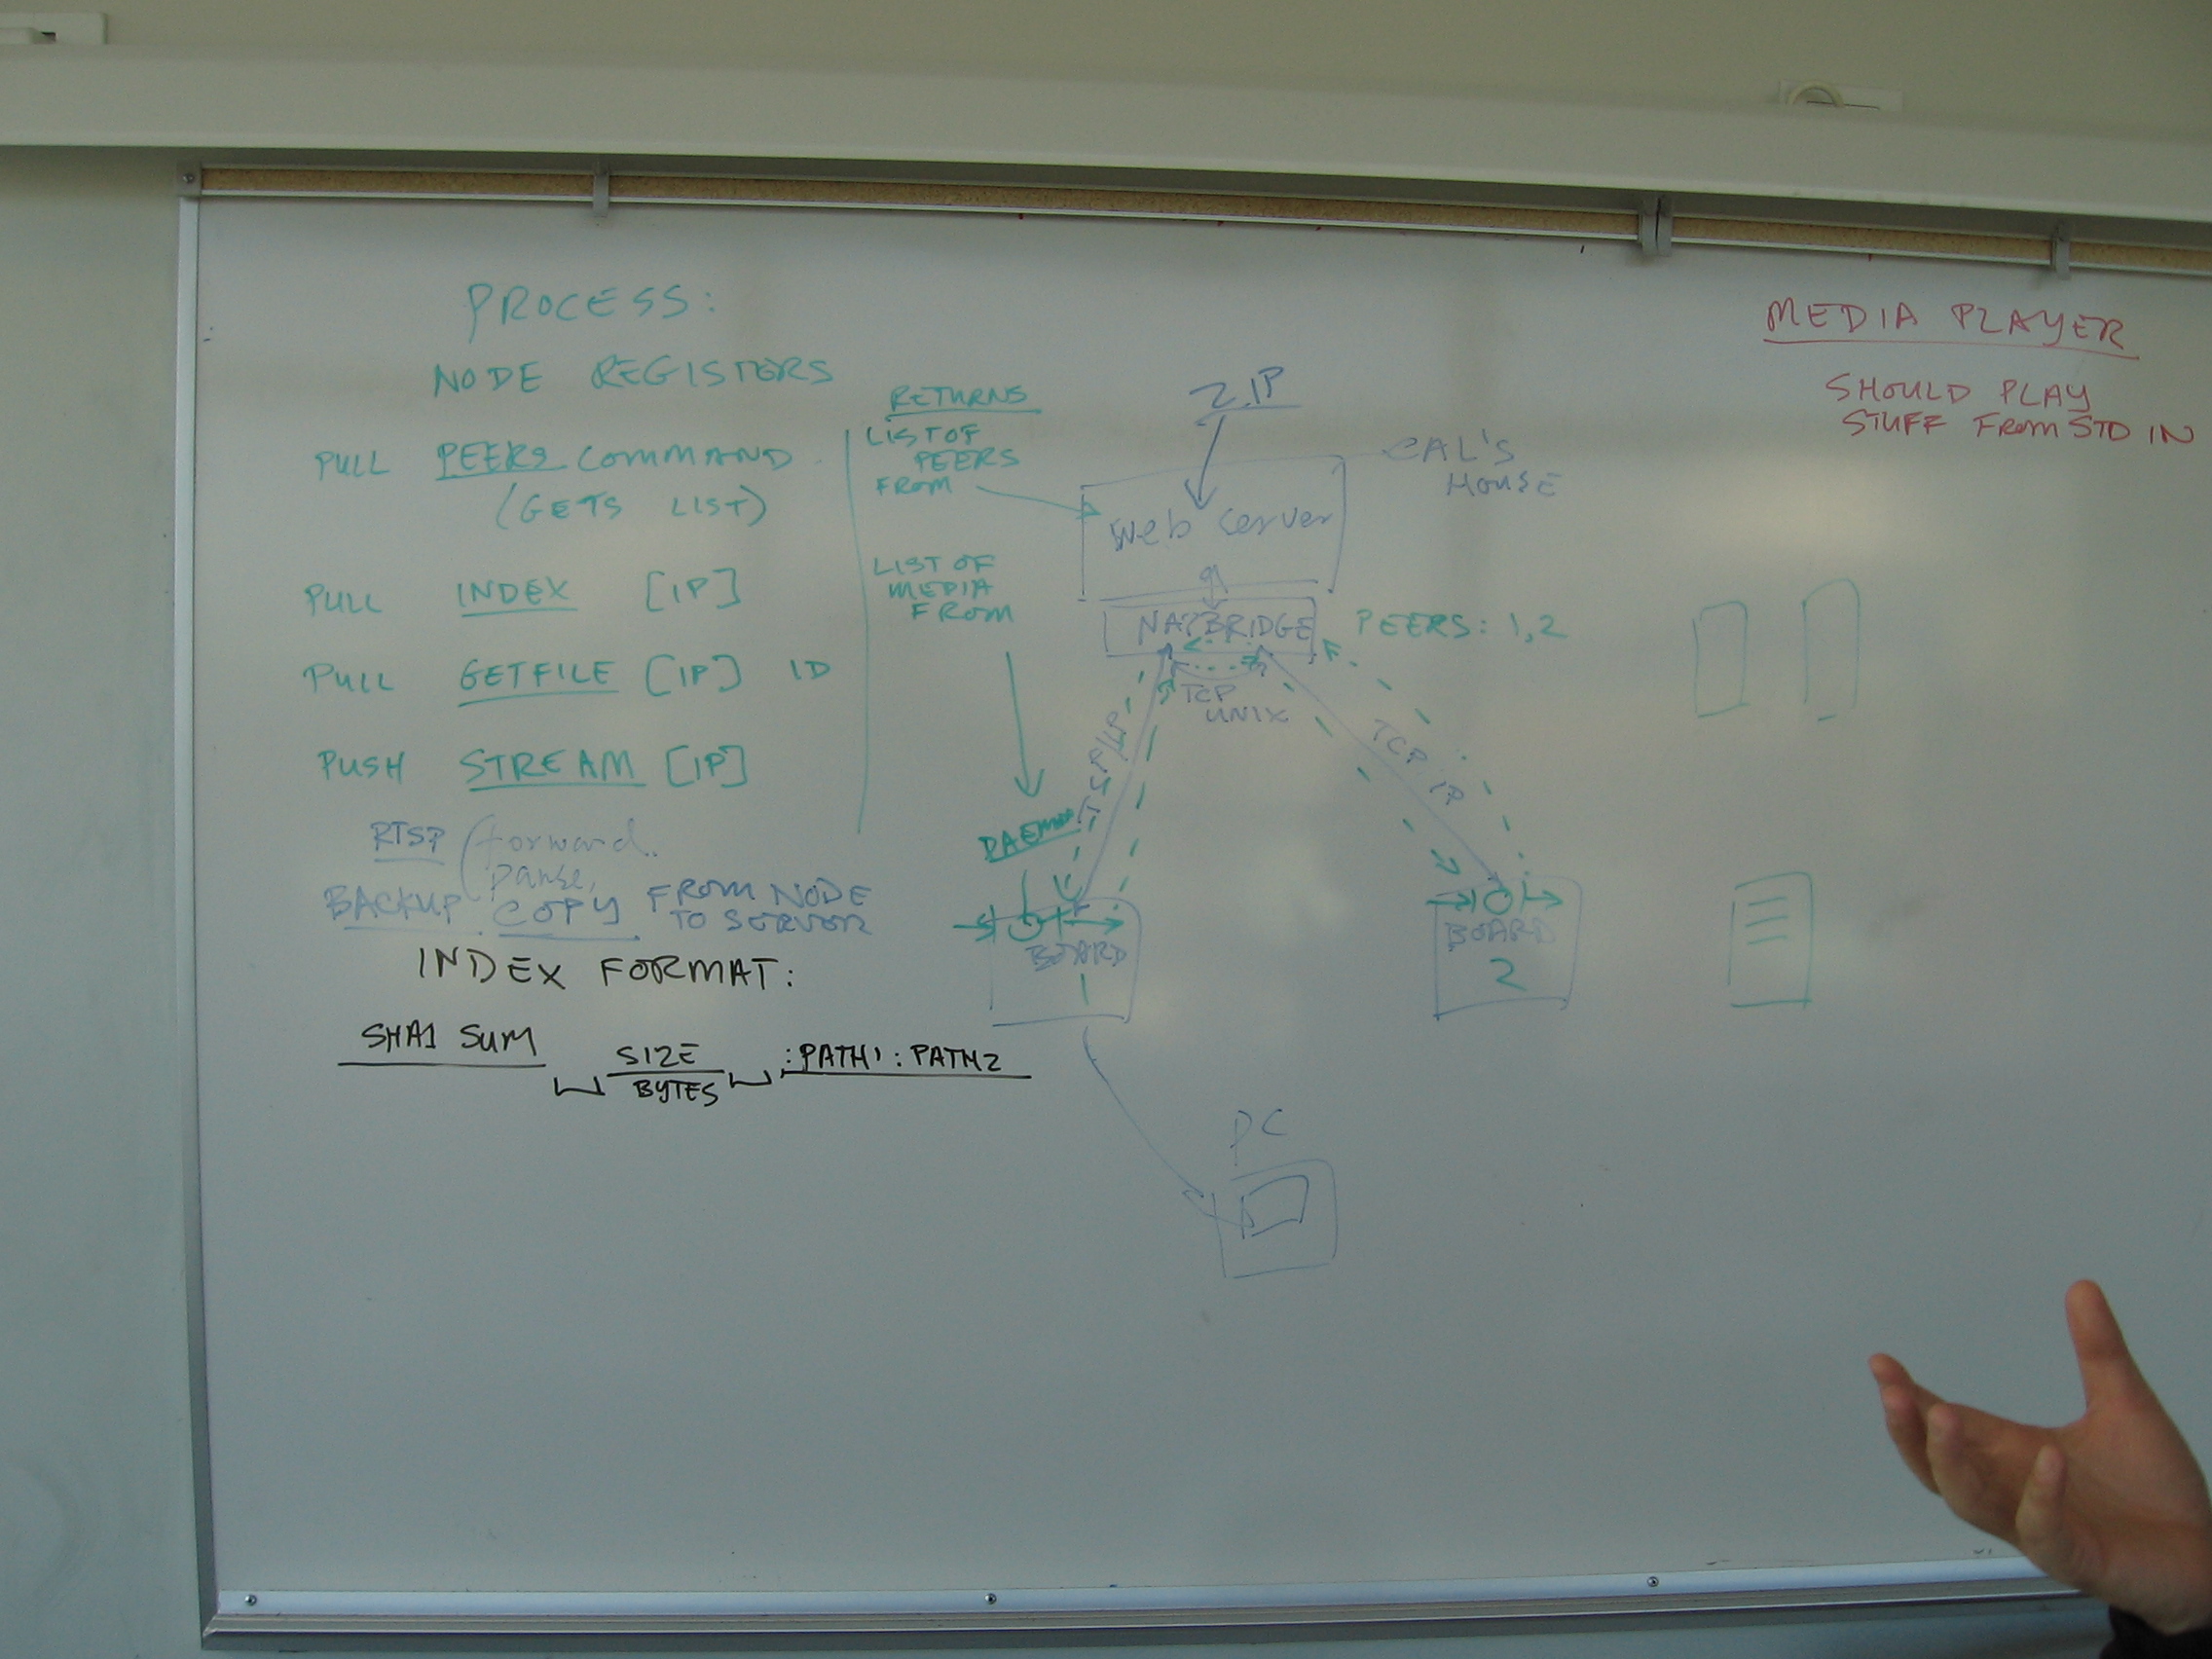 PROCESS:
NODE REGISTERS
PULL PEERS COMMAND
(GETS LIST)
PULL INDEX [IP]
PULL GETFILE [IP] ID
PUSH STREAM [IP]
RTSP (forward
pause,
BACKUP COPY FROM NODE
TO SERVER
INDEX FORMAT:
SHA1 SUM
SIZE
BYTES
:PATH1:PATH2
RETURNS
LIST OF
PEERS
FROM
LIST OF
MEDIA
FROM
Z.IP
CAL'S
HOUSE
Web server
PEERS: 1,2
TCP
UNIX
TCP/IP
TCP/IP
DAEMON
BOARD
1
BOARD
2
PC
MEDIA PLAYER
SHOULD PLAY
STUFF FROM STD IN